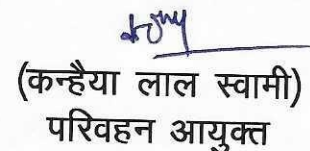 (कन्हैया लाल स्वामी)
परिवहन आयुक्त